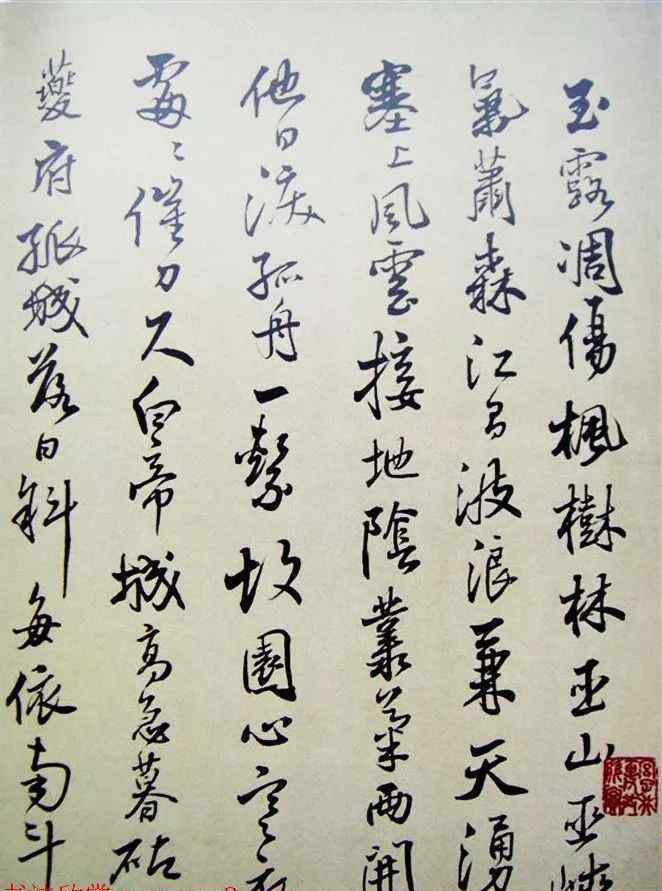 玉露凋傷楓樹林巫山巫峽
氣蕭森江間波浪兼天湧
塞上風雲接地陰叢菊兩開
他日淚孤舟一繫故園心寒衣
處〻催刀尺白帝城高急暮砧
夔府孤城落日斜每依南斗